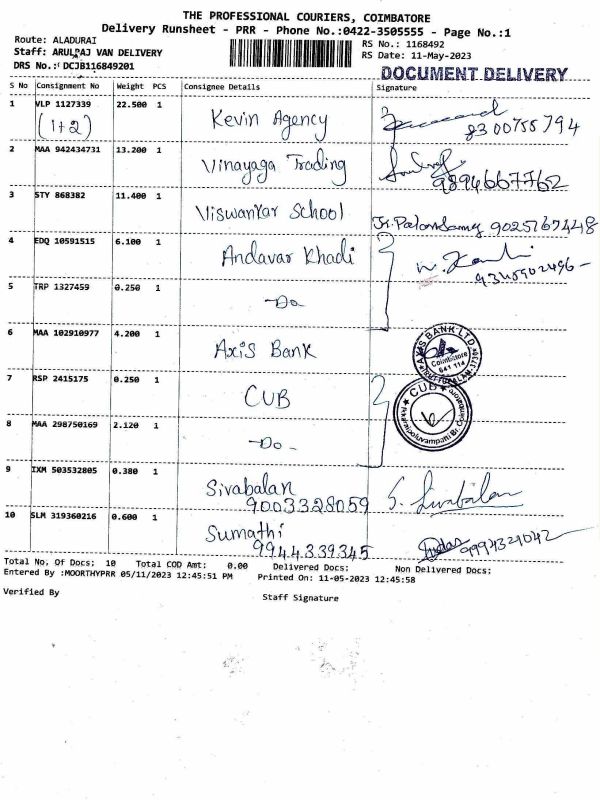 THE PROFESSIONAL COURIERS, COIMBATORE
Delivery Runsheet - PRR - Phone No.:0422-3505555 - Page No.:1
Route: ALADURAI
RS No.: 1168492
Staff: ARULRAJ VAN DELIVERY
RS Date: 11-May-2023
DRS No.: DCJB116849201
DOCUMENT DELIVERY
S No Consignment No Weight PCS Consignee Details Signature
1 VLP 1127339 22.500 1 Kevin Agency
(1+2) 8300755794
2 MAA 942434731 13.200 1 Vinayaga Trading
9894667762
3 STY 868382 11.400 1 Viswankar School 9025767448
4 EDQ 10591515 6.100 1 Andavar Khadi
9345902496
5 TRP 1327459 0.250 1 -Do-
6 MAA 102910977 4.200 1 Axis Bank AXIS BANK LTD. Coimbatore 641 114
7 RSP 2415175 0.250 1 CUB CUB
8 MAA 298750169 2.120 1 -Do-
9 IXM 503532805 0.380 1 Sivabalan S. Sivabalan
9003328059
10 SLM 319360216 0.600 1 Sumathi
9944339345 9994321042
Total No. Of Docs: 10 Total COD Amt: 0.00 Delivered Docs: Non Delivered Docs:
Entered By :MOORTHYPRR 05/11/2023 12:45:51 PM Printed On: 11-05-2023 12:45:58
Verified By Staff Signature